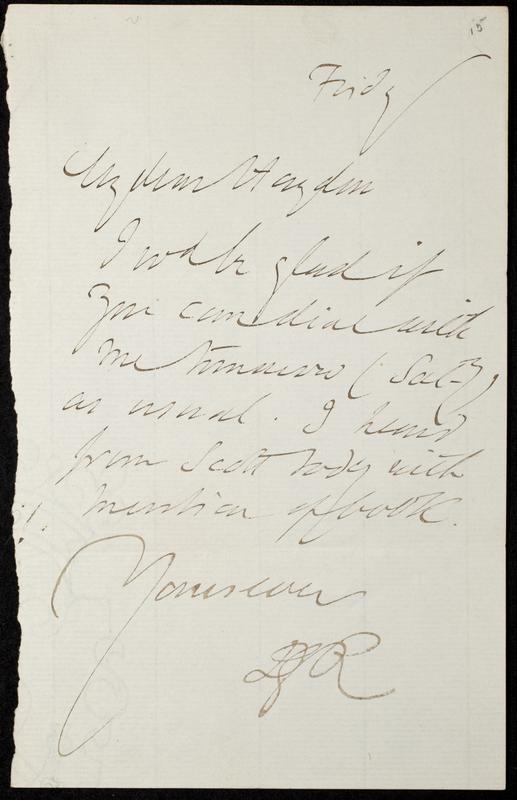 15
Fridy
My dear Haydon
I wd be glad if
you can dine with
me tomorrow (Saty)
as usual. I heard
from Scott tody with
mention of book.
Yours ever
DGR